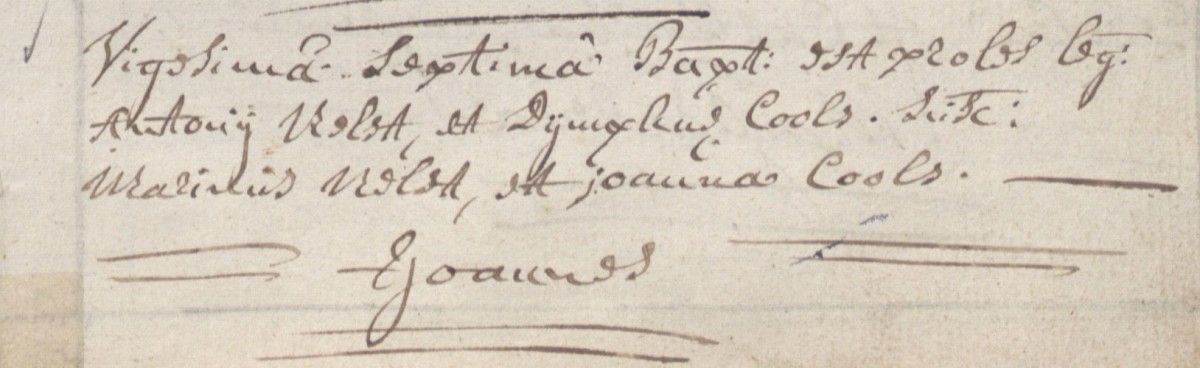 Vigesimâ Septimâ Bapt: est proles leg:
Antonij Nelst, et Dymphnæ Cools. Susc:
Marinus Nelst, et joanna Cools.
Joannes